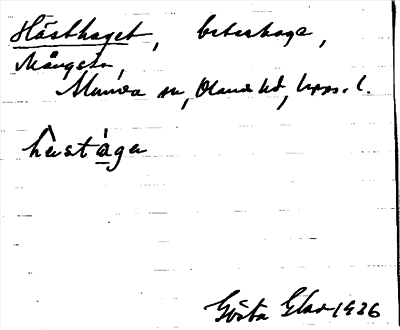 Hästhaget, beteshage,
Mångsta,
Munda sn, Olands hd, Upps. l.
hästága
Gösta Elar 1926